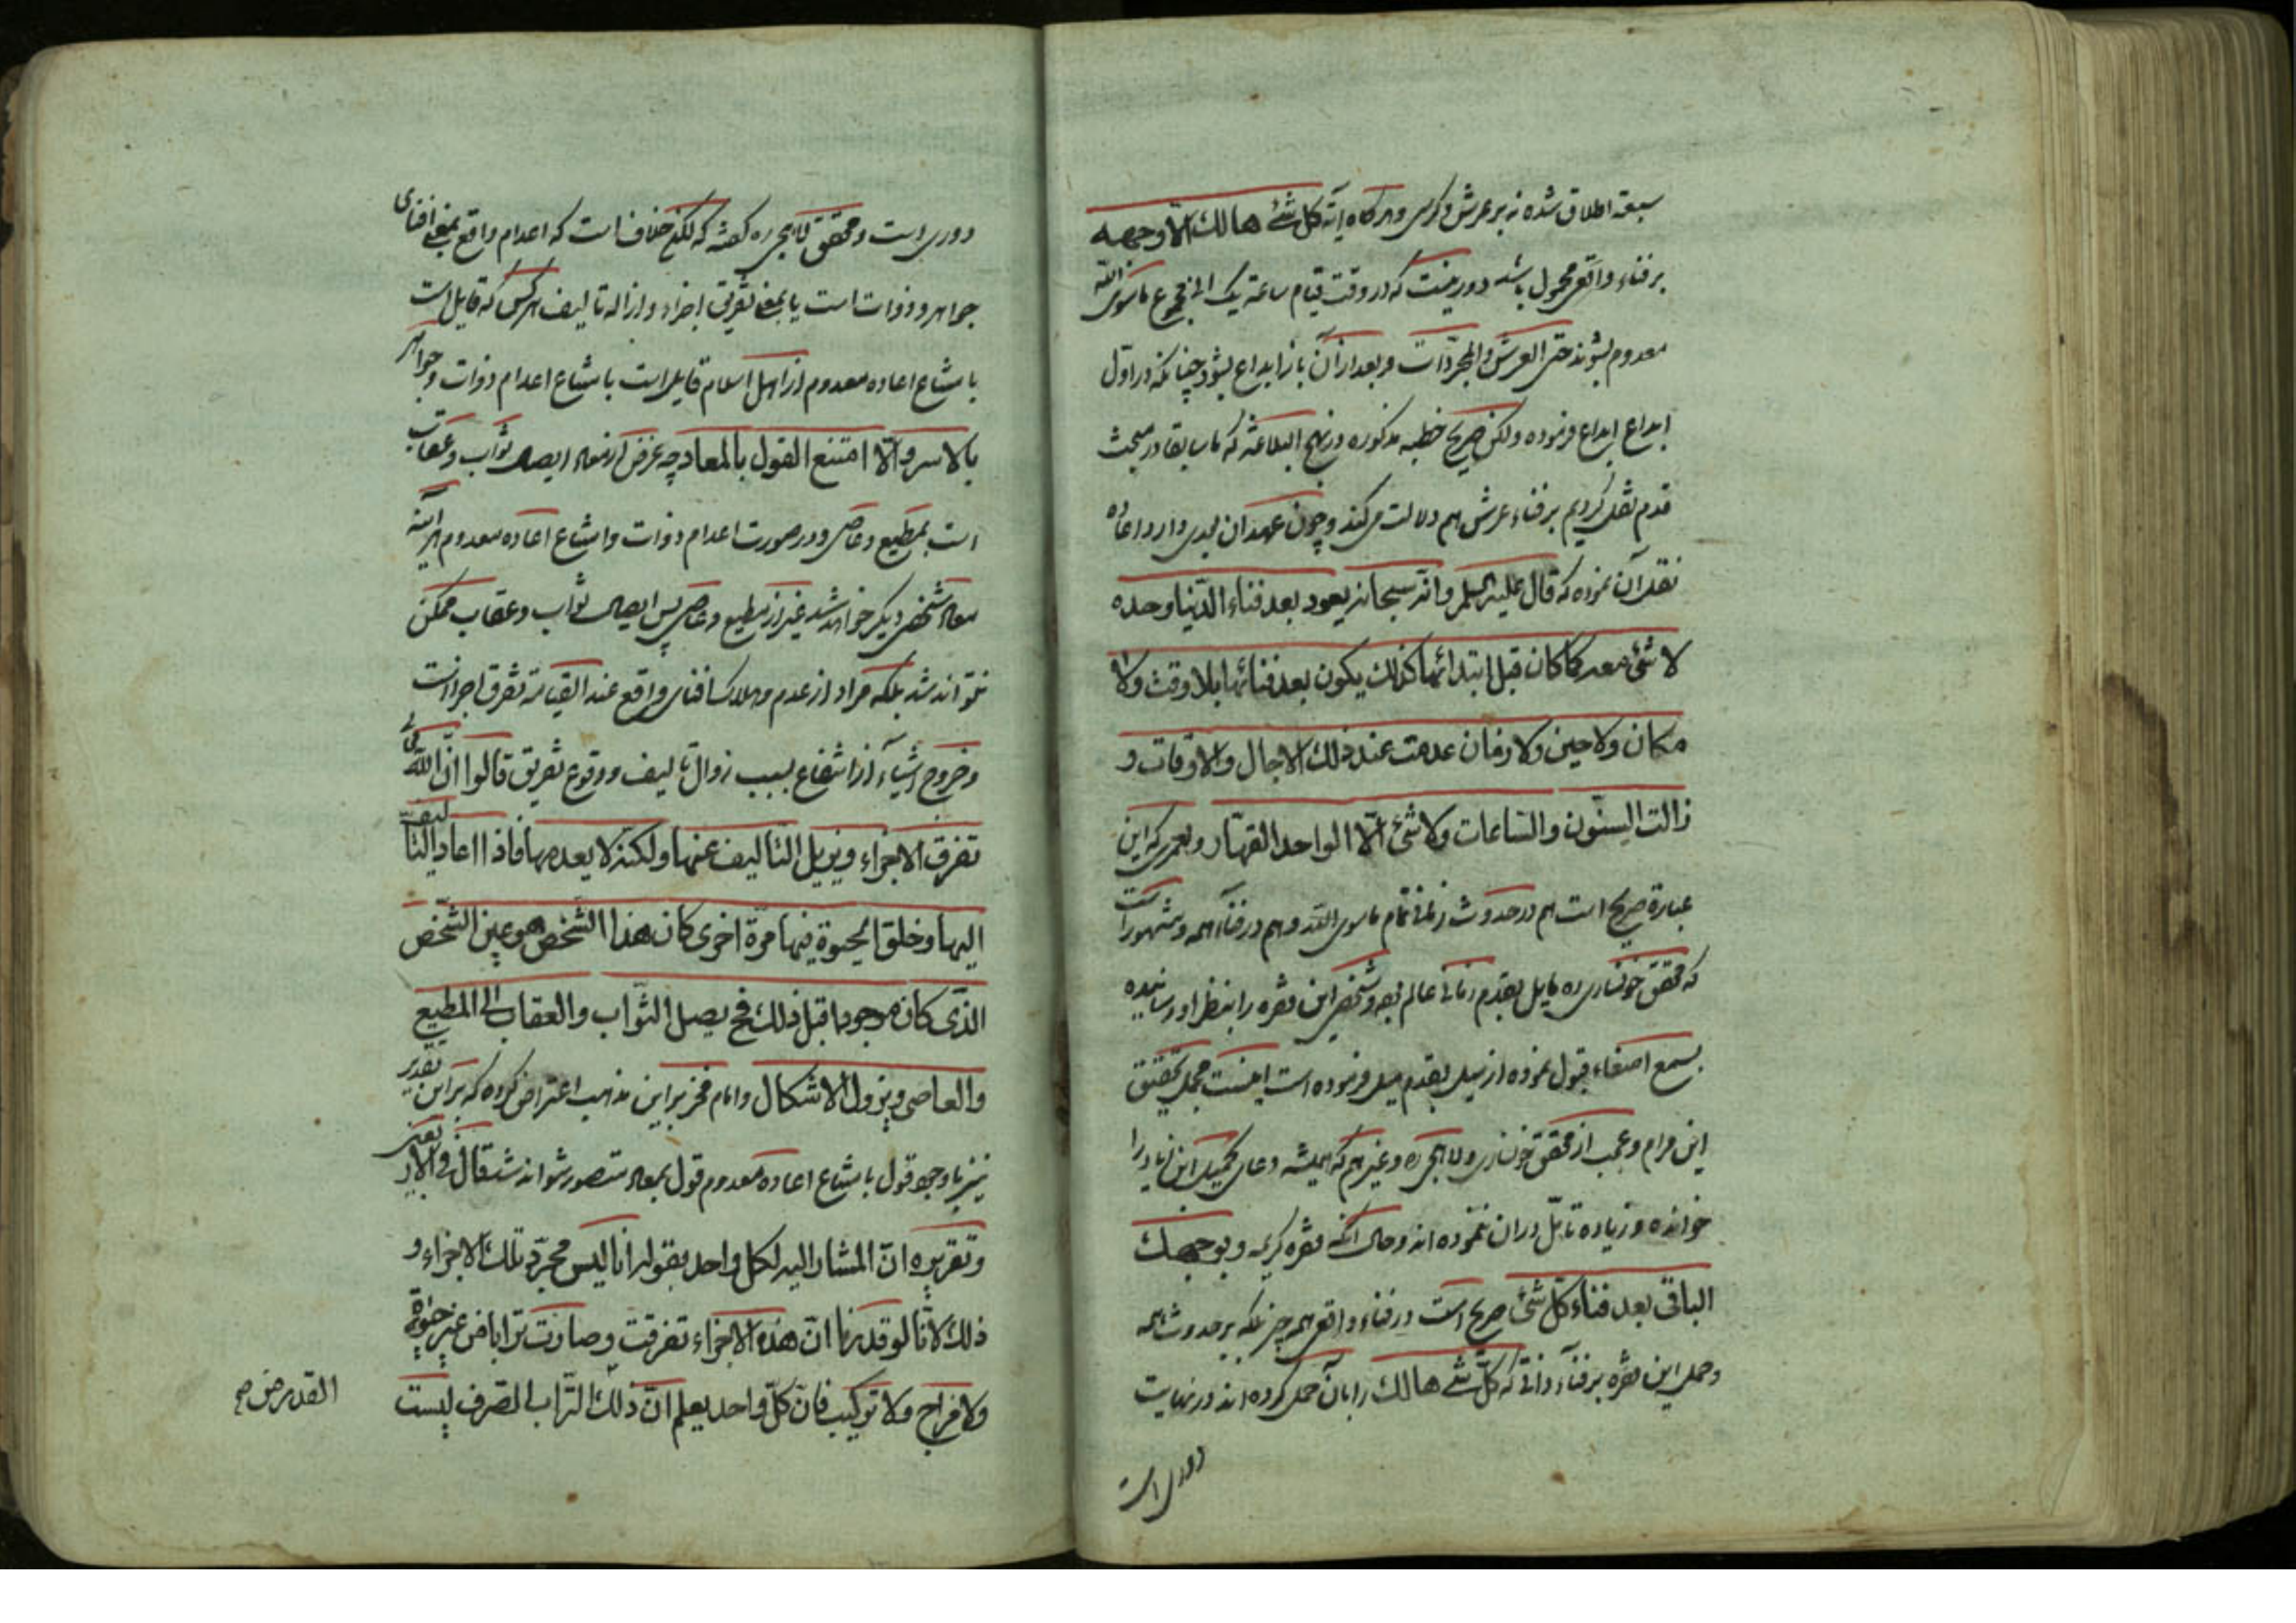 سبعه اطلاق شده نه بر عرش و کرسی و هر گاه آیه کل شئ هالك الّا وجهه
بر فناء واقعی محمول باشد دور نیست که در وقت قیام ساعة یک انی مجموع ماسوی اللّه
معدوم بشوند حتی العرش والمجردات و بعد از آن باز ابداع بشود چنانکه در اول
ابداع ابداع فرموده ولکن صریح خطبه مذکوره در نهج البلاغة که ما سابقا در مبحث
قدم نقل کردیم بر فناء عرش هم دلالت میکند و چون عهد آن بعدی دارد اعاده
نقل آن نموده که قال علیه السلم وانّه سبحانه یعود بعد فناء الدّنیا وحده
لا شئ معه کما کان قبل ابتدائها کذلك یکون بعد فنائها بلا وقت ولا
مکان ولا حین ولا زمان عدمت عند ذلك الاجال والاوقات و
زالت السنّون والسّاعات ولا شئ الّا الواحد القهّار ولعمری که این
عبارة صریح است هم در حدوث زمانی تمام ماسوی اللّه و هم در فناء همه و مشهور است
که محقق خونساری ره مایل بقدم زمانی عالم بوده و شخصی این فقره را بنظر او رسانیده
بسمع اصغاء قبول نموده از میل بقدم میل فرموده است اینست مجمل تحقیق
این مرام و عجب از محقق خونساری و لاهجی ره و غیرهم که همیشه دعای کمیل ابن زیاد را
خوانده و زیاده تامّل در آن ننموده اند و حال آنکه فقره کریمه وبوجهك
الباقی بعد فناء کلّ شئ صریح است در فناء واقعی همه چیز بلکه بر حدوث همه
و حمل این فقره بر فناء ذاتی که کلّ شئ هالك را بآن حمل کرده اند در نهایت
دوری است
دوری است و محقق لاهجی ره گفته که لکن خلاف است که اعدام واقع بمعنی افنای
جواهر و ذوات است یا بمعنی تفریق اجزاء و ازاله تالیف هر کس که قایل است
بامتناع اعاده معدوم از اهل اسلام قایل است بامتناع اعدام ذوات و جواهر
بالاسر والّا امتنع القول بالمعاد چه غرض از معاد ایصال ثواب و عقاب
است بمطیع و عاصی و در صورت اعدام ذوات و امتناع اعاده معدوم هر آینه
معاد شخص دیگر خواهد شد غیر از مطیع و عاصی پس ایصال ثواب و عقاب ممکن
نتواند شد بلکه مراد از عدم و هلاک و افنای واقع عند القیامة تفرق اجزا است
و خروج اشیاء از انتفاع بسبب زوال تالیف و وقوع تفریق قالوا انّ اللّه تعالی
تفرق الاجزاء ویزیل التّالیف عنها ولکنّه لا یعدمها فاذا اعاد التّالیف
الیها وخلق الحیوة فیها مرّة اخری کان هذا الشّخص هو عین الشّخص
الّذی کان موجودا قبل ذلك فح یصل الثّواب والعقاب الی المطیع
والعاصی ویزول الاشکال و امام فخر بر این مذهب اعتراض کرده که بر این تقدیر
نیز با وجود قول بامتناع اعاده معدوم قول بمعاد متصور نتواند شد قال فی الاربعین
وتقریره انّ المشار الیه لکل واحد بقوله انا لیس مجرّد تلك الاجزاء و
ذلك لانّا لو قدرنا انّ هذه الاجزاء تفرقت وصارت ترابا من غیر حیوة
ولا مزاج ولا ترکیب فانّ کلّ واحد یعلم انّ ذلك التّراب الصّرف لیست
القدر من صح